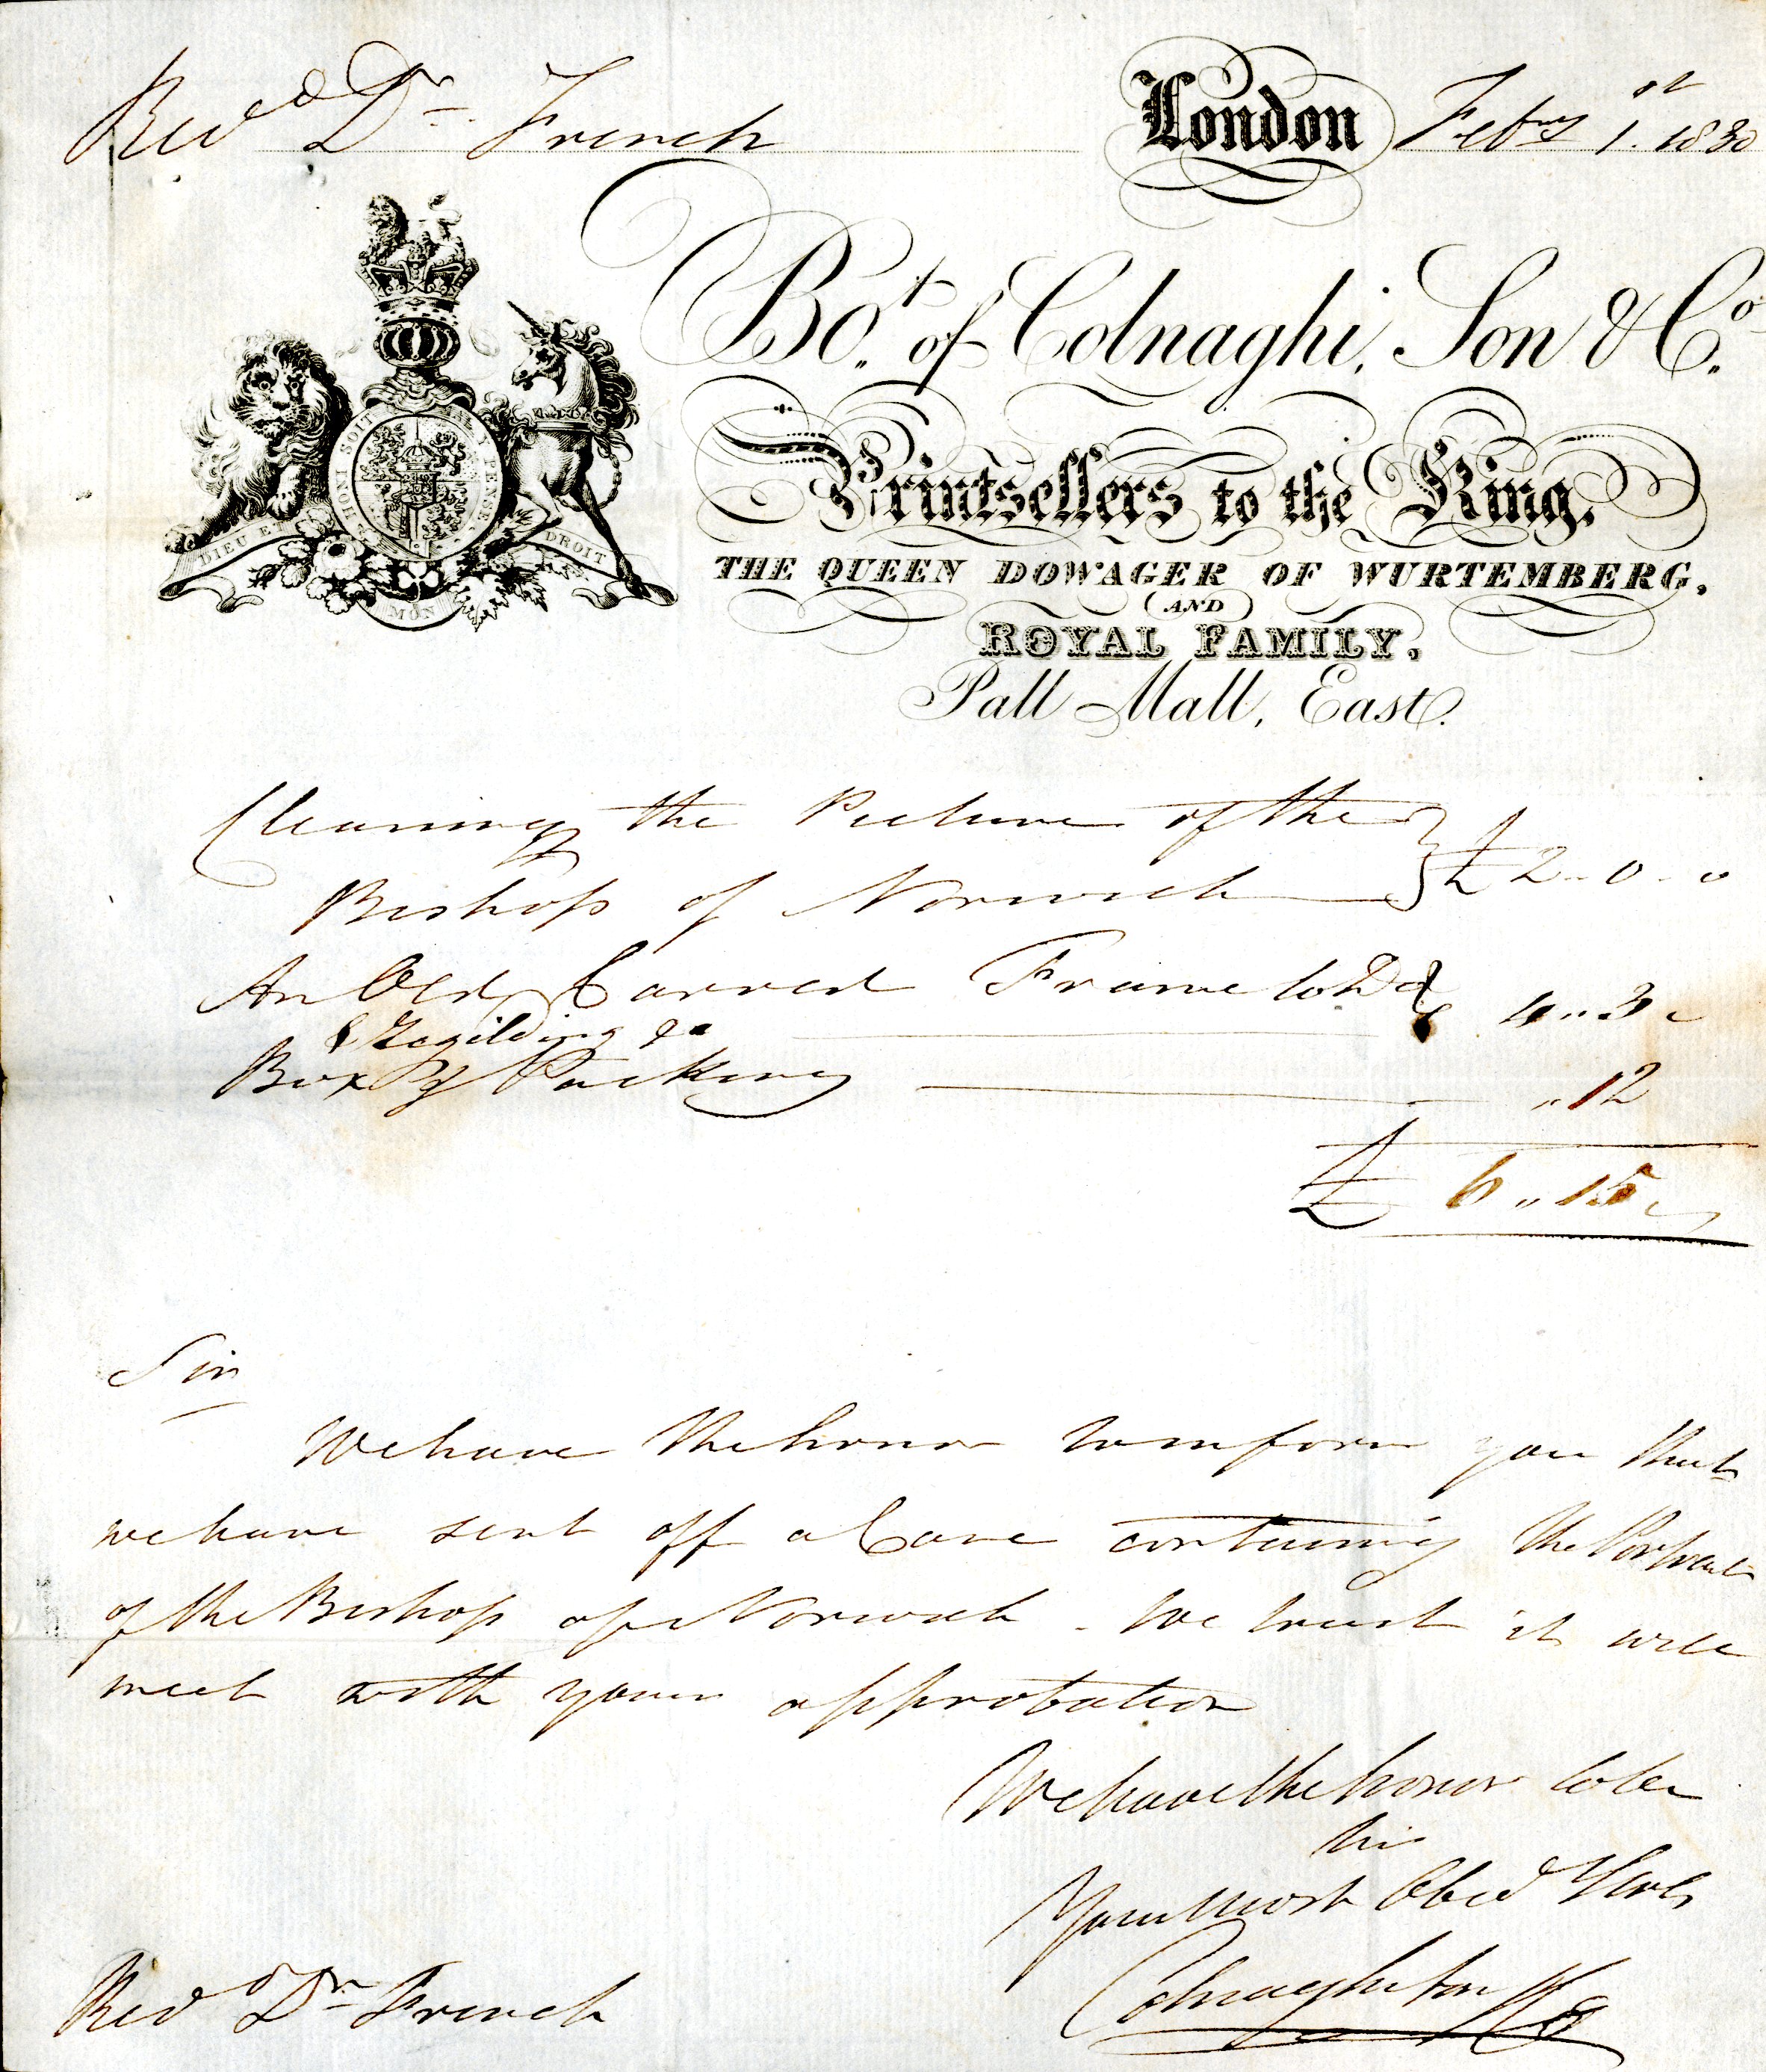 Revd Dr French London Febry 1st 1830
Bot. of Colnaghi, Son & Co.
Printsellers to the King,
THE QUEEN DOWAGER OF WURTEMBERG,
AND
ROYAL FAMILY,
Pall Mall, East.
HONI SOIT QUI MAL Y PENSE
DIEU ET MON DROIT
Cleaning the Picture of the
Bishop of Norwich £2-0-0
An Old Carved Frame 4"3-
& Regilding &c
Box & Packing "12
£ 6"15-
Sir
We have the honor to inform you that
we have sent off a Case containing the Portrait
of the Bishop of Norwich. We trust it will
meet with your approbation
We have the honor to be
Sir
Your most Obed Servts
Colnaghi Son & Co
Revd Dr French